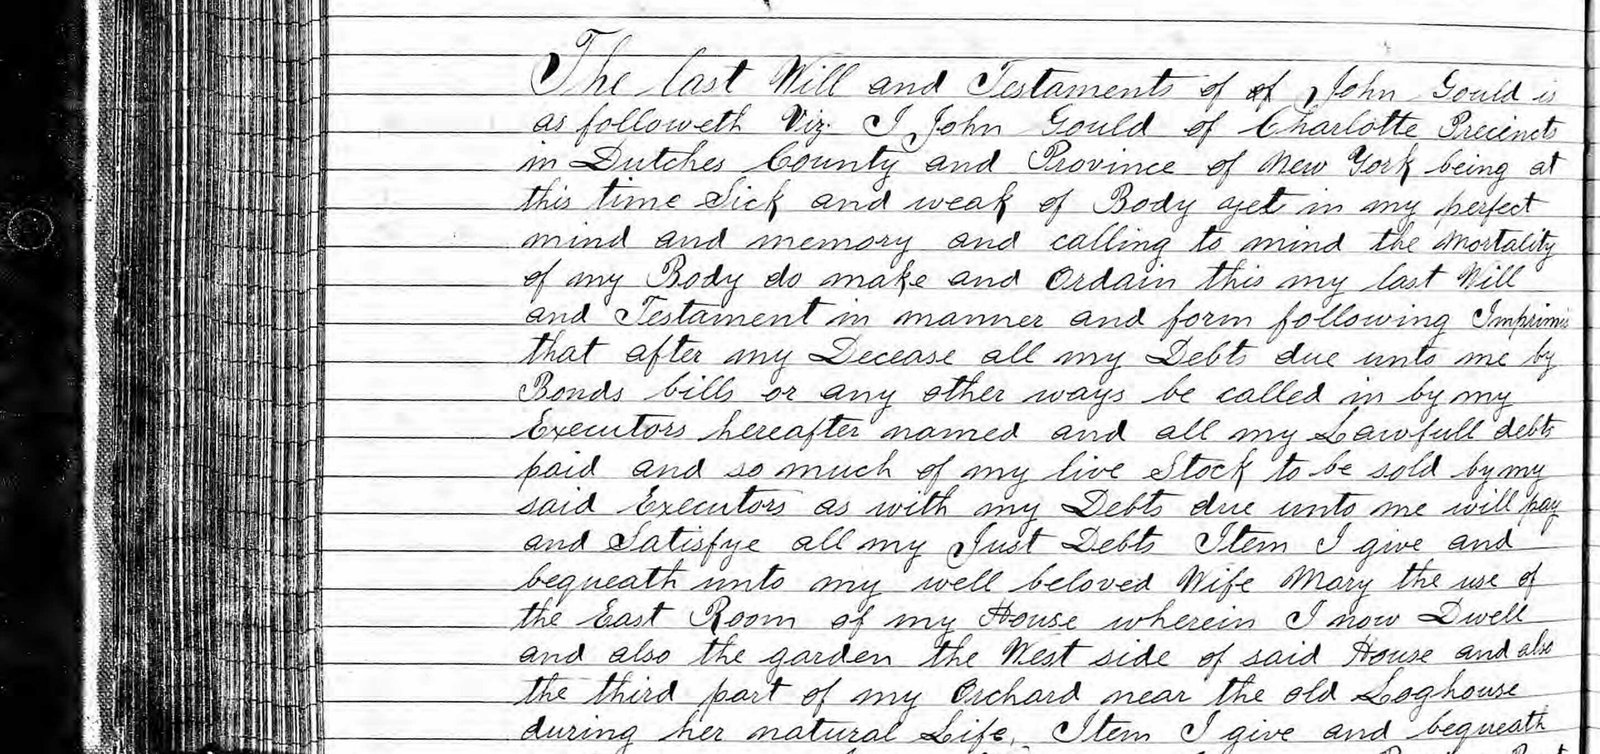 The last Will and Testaments of of John Gould is
as followeth Viz. I John Gould of Charlotte Precincts
in Dutches County and Province of New York being at
this time Sick and weak of Body yet in my perfect
mind and memory and calling to mind the Mortality
of my Body do make and Ordain this my last Will
and Testament in manner and form following Imprimis
that after my Decease all my Debts due unto me by
Bonds bills or any other ways be called in by my
Executors hereafter named and all my Lawfull debts
paid and so much of my live Stock to be sold by my
said Executors as with my Debts due unto me will pay
and Satisfye all my Just Debts Item I give and
bequeath unto my well beloved Wife Mary the use of
the East Room of my House wherein I now Dwell
and also the garden the West side of said House and also
the third part of my Orchard near the old Loghouse
during her natural Life, Item I give and bequeath